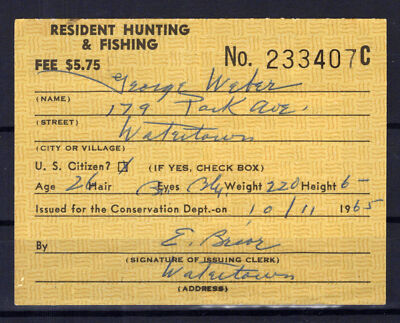 RESIDENT HUNTING
& FISHING
No. 233407C
FEE $5.75
George Weber
(NAME)
179 Park Ave.
(STREET)
Watertown
(CITY OR VILLAGE)
U. S. Citizen? (IF YES, CHECK BOX)
Age 26 Hair Br Eyes Blu Weight 220 Height 6-
Issued for the Conservation Dept.- on 10/11 1965
By E. Brior
(SIGNATURE OF ISSUING CLERK)
Watertown
(ADDRESS)